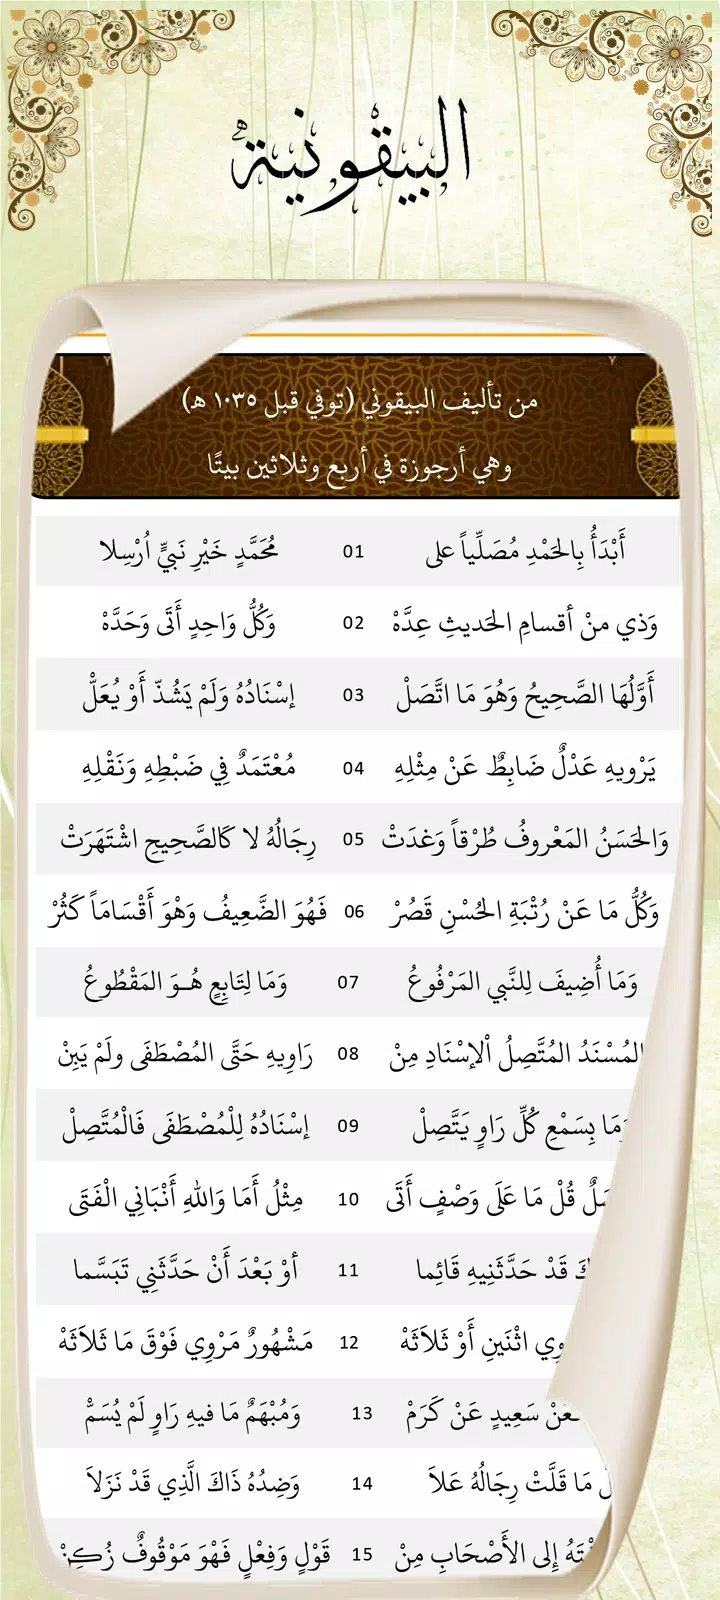 البيقونية
من تأليف البيقوني (توفي قبل ١٠٣٥ هـ)
وهي أرجوزة في أربع وثلاثين بيتًا
أَبْدَأُ بِالحَمْدِ مُصَلِّياً على 01 مُحَمَّدٍ خَيْرِ نَبِيٍّ أُرْسِلا
وَذي منْ أقسامِ الحَديثِ عِدَّهْ 02 وَكُلُّ وَاحِدٍ أَتَى وَحَدَّهْ
أَوَّلُهَا الصَّحِيحُ وَهُوَ مَا اتَّصَلْ 03 إسْنَادُهُ وَلَمْ يَشُذّ أَوْ يُعَلّْ
يَرْويهِ عَدْلٌ ضَابِطٌ عَنْ مِثْلِهِ 04 مُعْتَمَدٌ فِي ضَبْطِهِ وَنَقْلِهِ
وَالحَسَنُ المَعْروفُ طُرْقاً وَغدَتْ 05 رِجَالُهُ لا كَالصَّحِيحِ اشْتَهَرَتْ
وَكُلُّ مَا عَنْ رُتْبَةِ الحُسْنِ قَصُرْ 06 فَهُوَ الضَّعِيفُ وَهْوَ أَقْسَامَاً كَثُرْ
وَمَا أُضِيفَ لِلنَّبي المَرْفُوعُ 07 وَمَا لِتَابِعٍ هُـوَ المَقْطُوعُ
المُسْنَدُ المُتَّصِلُ اْلإسْنَادِ مِنْ 08 رَاوِيهِ حَتَّى المُصْطَفَى ولَمْ يَبِنْ
وَمَا بِسَمْعِ كُلِّ رَاوٍ يَتَّصِلْ 09 إسْنَادُهُ لِلْمُصْطَفَى فَالْمُتَّصِلْ
قُلْ مَا عَلَى وَصْفٍ أَتَى 10 مِثْلُ أَمَا وَاللهِ أَنْبَانِي الْفَتَى
قَدْ حَدَّثَنِيهِ قَائِما 11 أوْ بَعْدَ أَنْ حَدَّثَنِي تَبَسَّما
اثْنَينِ أَوْ ثَلاَثَهْ 12 مَشْهُورٌ مَرْوِي فَوْقَ مَا ثَلاَثَهْ
عَنْ سَعِيدٍ عَنْ كَرَمْ 13 وَمُبْهَمٌ مَا فيهِ رَاوٍ لَمْ يُسَمّْ
مَا قَلَّتْ رِجَالُهُ عَلاَ 14 وَضِدُهُ ذَاكَ الَّذِي قَدْ نَزَلاَ
إِلى الأَصْحَابِ مِنْ 15 قَوْلٍ وَفِعْلٍ فَهْوَ مَوْقُوفٌ زُكِنْ